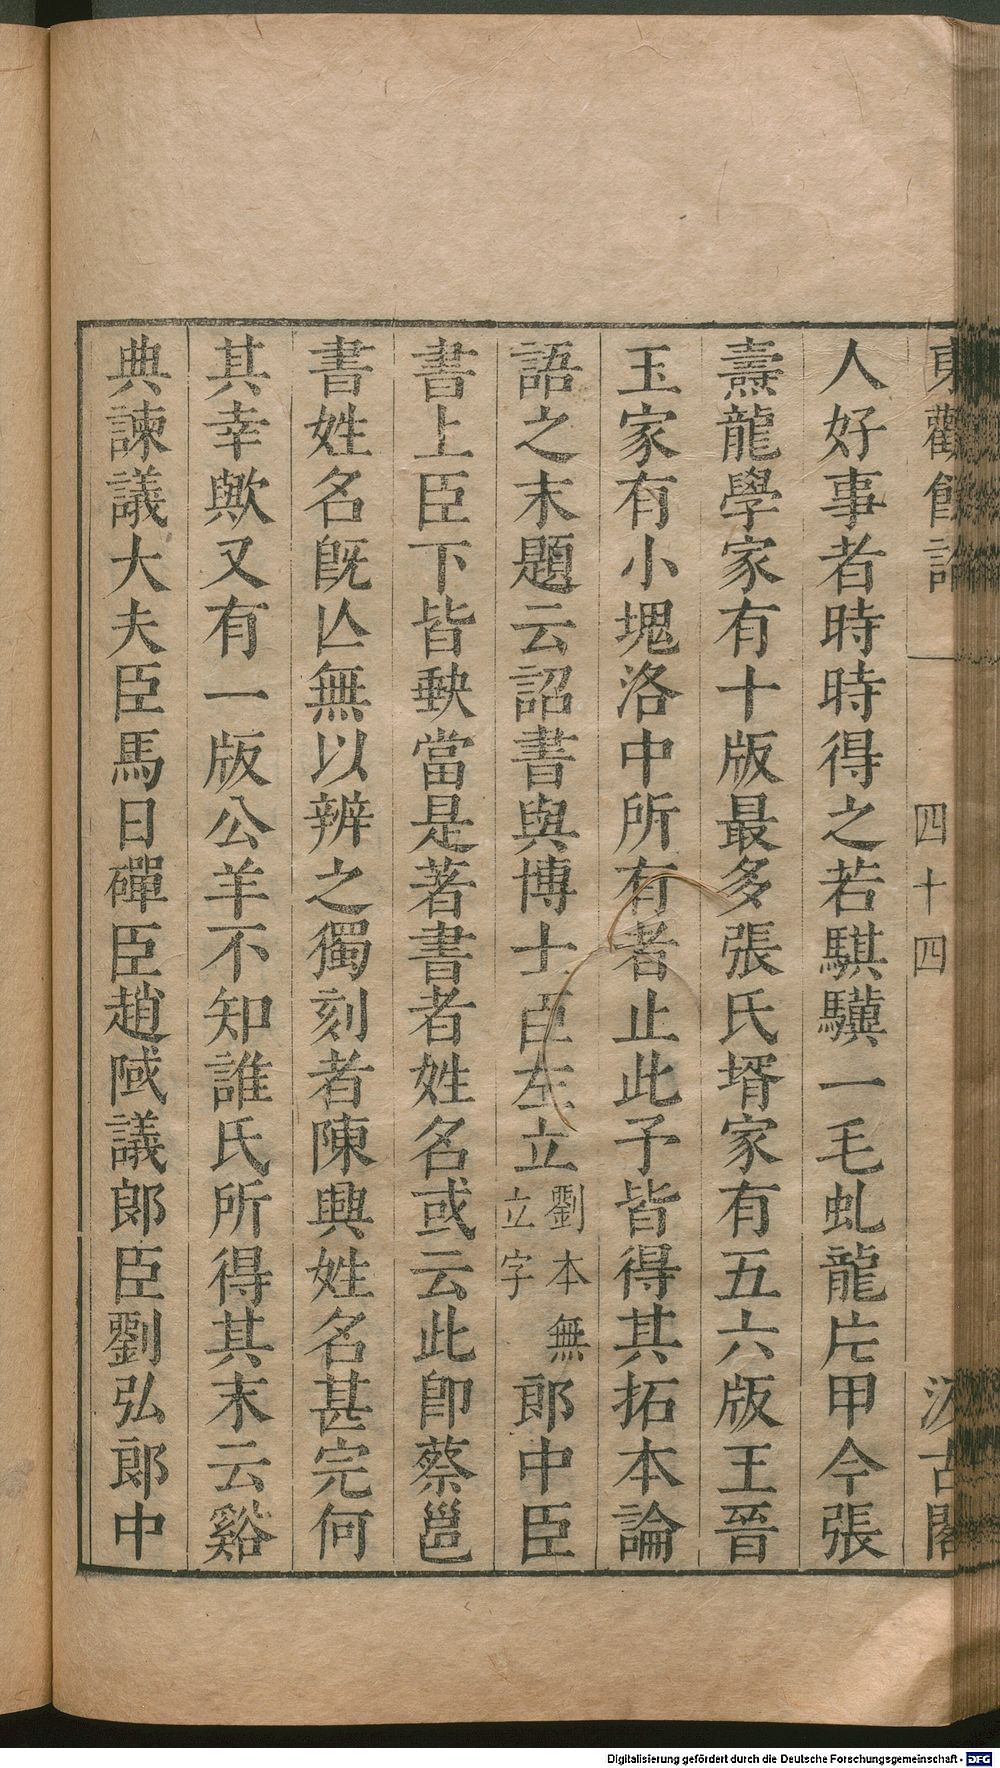 東觀餘論
四十四
汲古閣
人好事者時時得之若騏驥一毛虬龍片甲今張
燾龍學家有十版最多張氏壻家有五六版王晉
玉家有小塊洛中所有者止此予皆得其拓本論
語之末題云詔書與博士臣左立劉本無立字郎中臣
書上臣下皆缺當是著書者姓名或云此卽蔡邕
書姓名旣亾無以辨之獨刻者陳興姓名甚完何
其幸歟又有一版公羊不知誰氏所得其末云谿
典諫議大夫臣馬日磾臣趙䧕議郎臣劉弘郎中
Digitalisierung gefördert durch die Deutsche Forschungsgemeinschaft - DFG